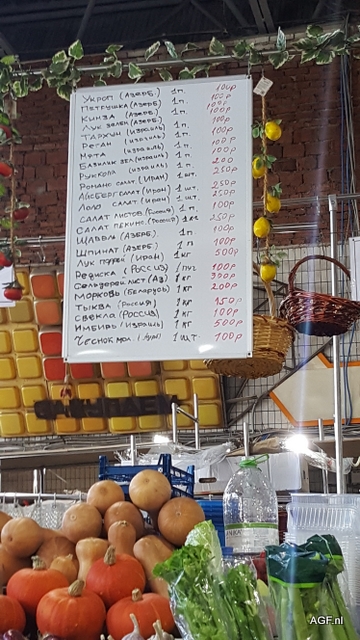 Укроп (Азерб) 1п. 100р
Петрушка (Азерб) 1п. 100р
Кинза (Азерб.) 1п. 100р
Лук зелен (Азерб) 1п.
Тархун (израиль) 1п. 100р
Реган (израиль) 1п. 100р
Мята (израиль) 1п. 100р
Базилик зел (израиль) 1п. 200
Руккола (израиль) 1п. 250р
Романо салат (Иран) 1шт.
Айсберг салат (Иран) 1шт. 250р
Лоло салат (Иран) 1шт. 250р
Салат листов (Россия) 1п
Салат пекинс. (Россия) 250р
Щавель (Азерб) 1п.
Шпинат (Азерб) 1п 100р
Лук порей (Иран) 1кг 500р
Редиска (Россия) 1пуч 100р
Сельдерей лист (Аз) 1кг 300р
Морковь (Беларусь) 1кг 200р
Тыква (Россия) 1кг 150р
Свекла (Россия) 1кг 100р
Имбирь (Израиль) 1кг 500р
Чеснок мол. 1шт. 100р
AGF.nl
AGF.nl